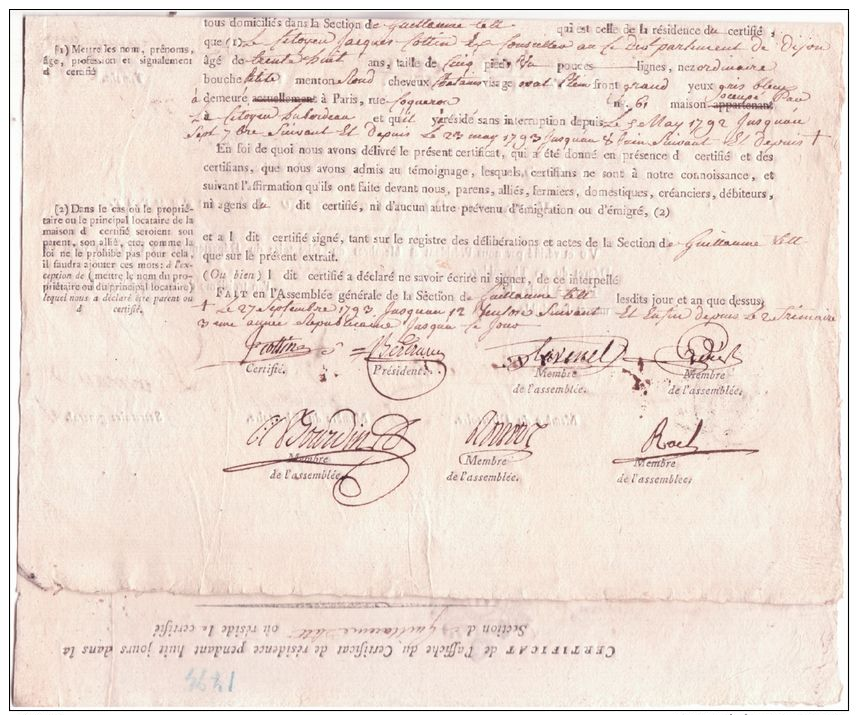 tous domiciliés dans la Section de Guillaume tell qui est celle de la résidence du certifié,
que (1) Le Citoyen Jacques Cottin Ex Conseiller au Parlement de Dijon
âgé de trente huit ans, taille de Cinq pieds un pouces lignes, nez ordinaire
bouche petite menton Rond cheveux Chatain visage oval plein front grand yeux gris bleux
a demeuré actuellement à Paris, rue Coqueron n.º 61 maison appartenant occupé Par
Le Citoyen Dubordeau et qu'il y a résidé sans interruption depuis Le 5 May 1792 Jusquau
Sept 7bre Suivant Et Depuis Le 23 may 1793 Jusquau 8 Juin Suivant Et depuis +
En foi de quoi nous avons délivré le présent certificat, qui a été donné en présence d certifié et des
certifians, que nous avons admis au témoignage, lesquels certifians ne sont à notre connoissance, et
suivant l'affirmation qu'ils ont faite devant nous, parens, alliés, fermiers, domestiques, créanciers, débiteurs,
ni agens du dit certifié, ni d'aucun autre prévenu d'émigration ou d'émigré, (2)
et a l dit certifié signé, tant sur le registre des délibérations et actes de la Section de Guillaume tell
que sur le présent extrait.
(Ou bien) l dit certifié a déclaré ne savoir écrire ni signer, de ce interpellé
FAIT en l'Assemblée générale de la Section de Guillaume tell lesdits jour et an que dessus
+ Le 27 Septembre 1793 Jusquau 12 Suivant Et Enfin depuis Le 2 frimaire
3eme année Republicaine Jusqua ce Jour
(1) Mettre les nom, prénoms,
âge, profession et signalement
d certifié
(2) Dans le cas où le proprié-
taire ou le principal locataire de la
maison d certifié seroient son
parent, son allié, etc, comme la
loi ne le prohibe pas pour cela,
il faudra ajouter ces mots: à l'ex-
ception de (mettre le nom du pro-
priétaire ou du principal locataire)
lequel nous a déclaré être parent ou
d certifié.
J Cottin
Certifié.
Président.
Membre
de l'assemblée.
Membre
de l'assemblée.
Bourdin
Membre
de l'assemblée.
Membre
de l'assemblée.
Membre
de l'assemblée.
Section de Guillaume tell où réside le certifié
CERTIFICAT de l'affiche du Certificat de résidence pendant huit jours dans la